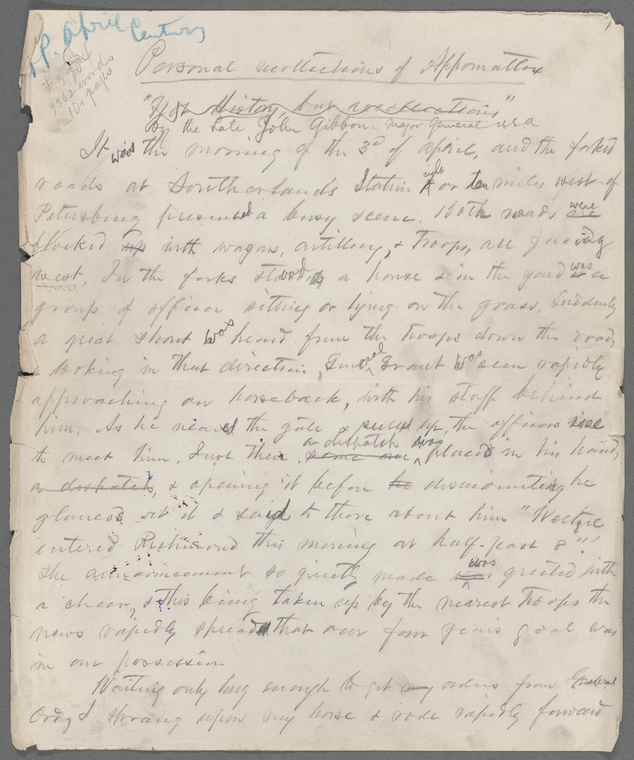 April Century
words
10 pages
Personal recollections of Appomattox
"Not History but recollections"
By the Late John Gibbon Major General USA
It was the morning of the 3d of April, and the forked
roads at Southerland's Station eight or ten miles west of
Petersburg presented a busy scene. Both roads were
blocked up with wagons, artillery, & troops, all facing
west. In the forks stood a house & in the yard was a
group of officers sitting or lying on the grass. Suddenly
a great shout was heard from the troops down the road,
& looking in that direction, General Grant was seen rapidly
approaching on horseback, with his staff behind
him. As he neared the gate & pulled up, the officers rose
to meet him. Just then, some one a dispatch was placed in his hand,
a dispatch, & opening it before he dismounting he
glanced at it & said to those about him "Weitzel
entered Richmond this morning at half-past 8"!
The announcement so quietly made was greeted with
a cheer, & this being taken up by the nearest troops the
news rapidly spread that our four years goal was
in our possession.
Waiting only long enough to get my orders from General
Ord, I sprang upon my horse & rode rapidly forward